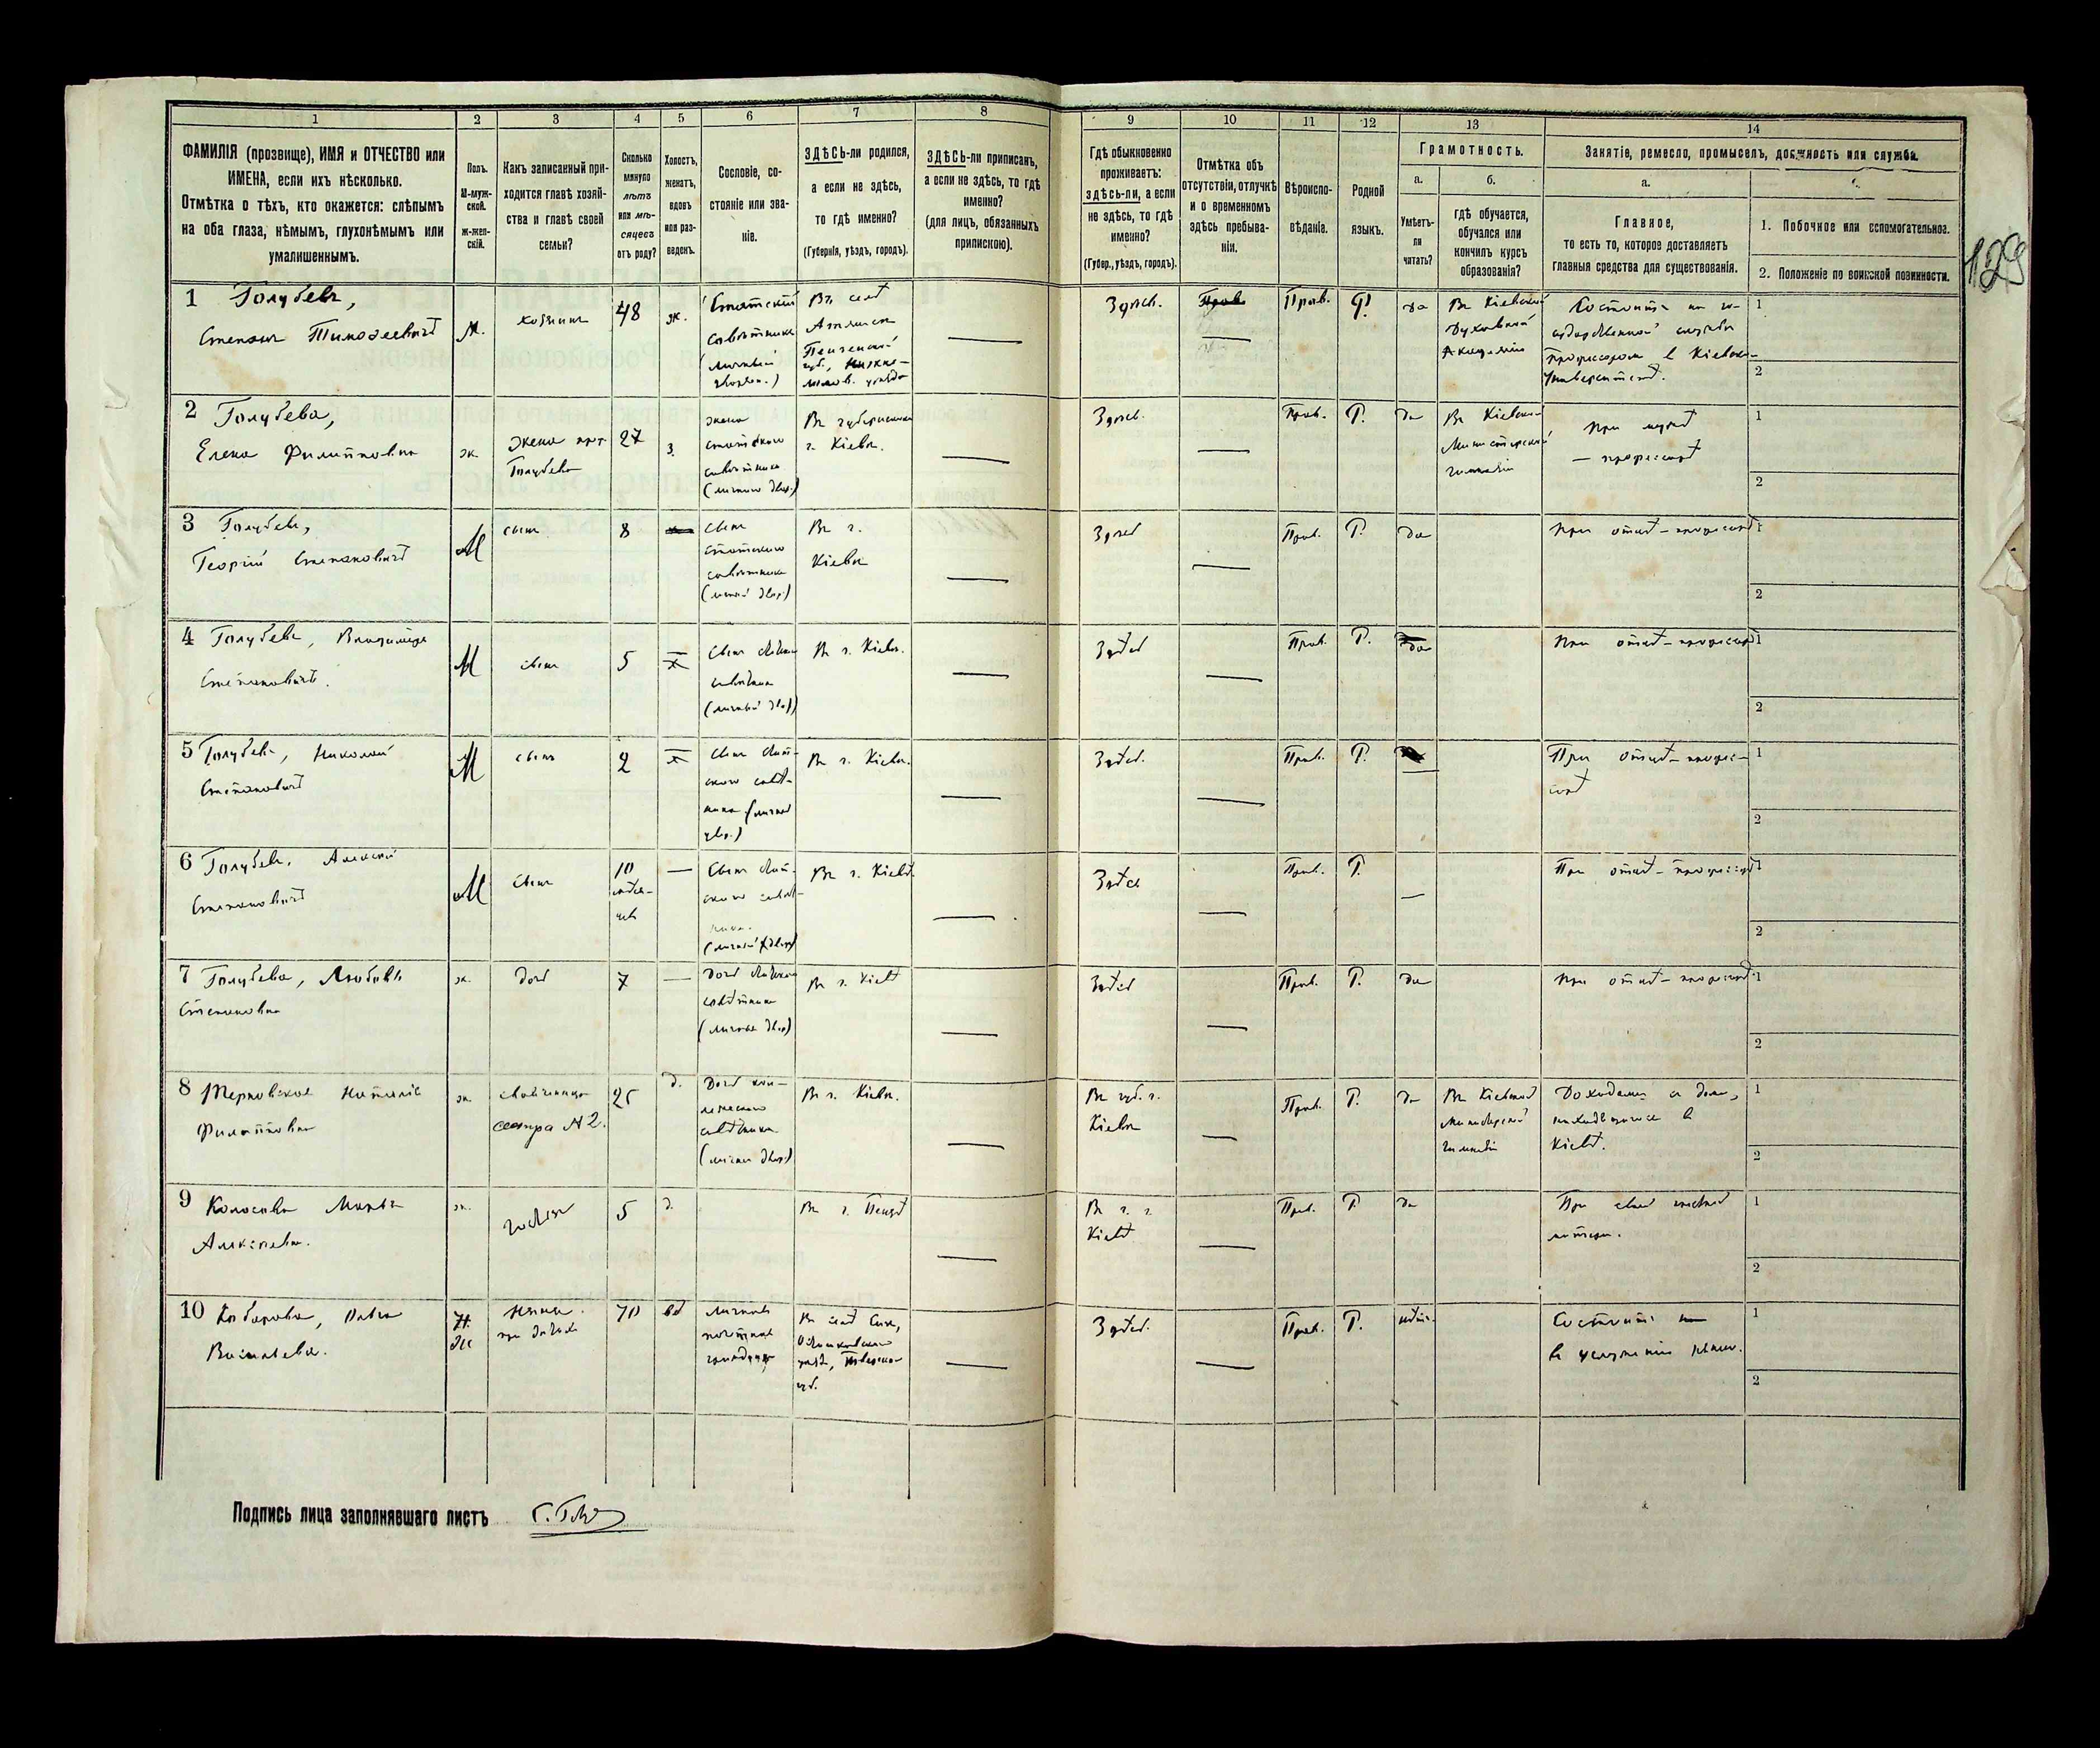 1 2 3 4 5 6 7 8 9 10 11 12 13 14
ФАМИЛІЯ (прозвище), ИМЯ и ОТЧЕСТВО или
ИМЕНА, если ихъ нѣсколько.
Отмѣтка о тѣхъ, кто окажется: слѣпымъ
на оба глаза, нѣмымъ, глухонѣмымъ или
умалишеннымъ.
Полъ.
М-муж-
ской.
Ж-жен-
скій.
Какъ записанный при-
ходится главѣ хозяй-
ства и главѣ своей
семьи?
Сколько
минуло
лѣтъ
или мѣ-
сяцевъ
отъ роду?
Холостъ,
женатъ,
вдовъ
или раз-
веденъ.
Сословіе, со-
стояніе или зва-
ніе.
ЗДѢСЬ-ли родился,
а если не здѣсь,
то гдѣ именно?
(Губернія, уѣздъ, городъ).
ЗДѢСЬ-ли приписанъ,
а если не здѣсь, то гдѣ
именно?
(для лицъ, обязанныхъ
припискою).
Гдѣ обыкновенно
проживаетъ:
здѣсь-ли, а если
не здѣсь, то гдѣ
именно?
(Губер., уѣздъ, городъ).
Отмѣтка объ
отсутствіи, отлучкѣ
и о временномъ
здѣсь пребыва-
ніи.
Вѣроиспо-
вѣданіе.
Родной
языкъ.
Грамотность.
а.
Умѣетъ-
ли
читать?
б.
гдѣ обучается,
обучался или
кончилъ курсъ
образованія?
Занятіе, ремесло, промыселъ, должность или служба.
а.
Главное,
то есть то, которое доставляетъ
главныя средства для существованія.
1. Побочное или вспомогательное.
2. Положеніе по воинской повинности.
129
1 Голубевъ,
Степанъ Тимоѳеевичъ
М.
хозяинъ
48
ж.
Статскій
совѣтникъ
(личный
дворян.)
Въ селѣ
Пензенской
губ., Нижне-
ломов. уѣзда
Здѣсь.
Прав.
Р.
да
Въ Кіевской
Духовной
Академіи
Состоитъ на го-
сударственной службѣ
профессоромъ в Кіевск.
Университетѣ.
1
2
2 Голубева,
Елена Филипповна
ж.
жена
Голубева
27
з.
жена
статскаго
совѣтника
(личная двор.)
Въ губернском
г. Кіевѣ.
Здѣсь.
Прав.
Р.
да
Въ Кіевской
Министерской
гимназіи
При мужѣ
— профессорѣ
1
2
3 Голубевъ,
Георгій Степановичъ
М
сынъ
8
сынъ
статскаго
совѣтника
(личный двор.)
Въ г.
Кіевѣ
Здѣсь
Прав.
Р.
да
При отцѣ-профессорѣ
1
2
4 Голубевъ, Владиміръ
Степановичъ.
М
сынъ
5
х
Сынъ статск.
совѣтника
(личный двор.)
Въ г. Кіевѣ.
Здѣсь
Прав.
Р.
да
При отцѣ-профессорѣ
1
2
5 Голубевъ, Николай
Степановичъ
М
сынъ
2
х
Сынъ стат-
скаго совѣт-
ника (личный
двор.)
Въ г. Кіевѣ.
Здѣсь.
Прав.
Р.
При отцѣ-профес-
сорѣ
1
2
6 Голубевъ, Алексѣй
Степановичъ
М
Сынъ
10
мѣся-
цевъ
Сынъ стат-
скаго совѣт-
ника
(личный двор.)
Въ г. Кіевѣ.
Здѣсь
Прав.
Р.
При отцѣ-профессорѣ
1
2
7 Голубева, Любовь
Степановна
ж.
дочь
7
Дочь статскаго
совѣтника
(личная двор.)
Въ г. Кіевѣ
Здѣсь
Прав.
Р.
да
При отцѣ-профессорѣ
1
2
8 Терновская Наталія
Филипповна
ж.
свояченица
сестра №2.
25
д.
Дочь кол-
лежскаго
совѣтника
(личная двор.)
Въ г. Кіевѣ.
Въ губ. г.
Кіевѣ
Прав.
Р.
да
Въ Кіевской
Министерской
гимназіи
Доходами съ дома,
находящагося в
Кіевѣ.
1
2
9 Колосова Марья
Алексѣевна.
ж.
гостья
5
д.
Въ г. Пензѣ
Въ г. г.
Кіевѣ
Прав.
Р.
да
При своей
матери.
1
2
10
Васильевна.
Ж
няня
при дѣтяхъ
70
вд
почетная
гражданка
Въ селѣ
Осташковскаго
уѣзд., Тверской
губ.
Здѣсь.
Прав.
Р.
нѣтъ.
Состоитъ
въ услуженіи няни.
1
2
Подпись лица заполнявшаго листъ